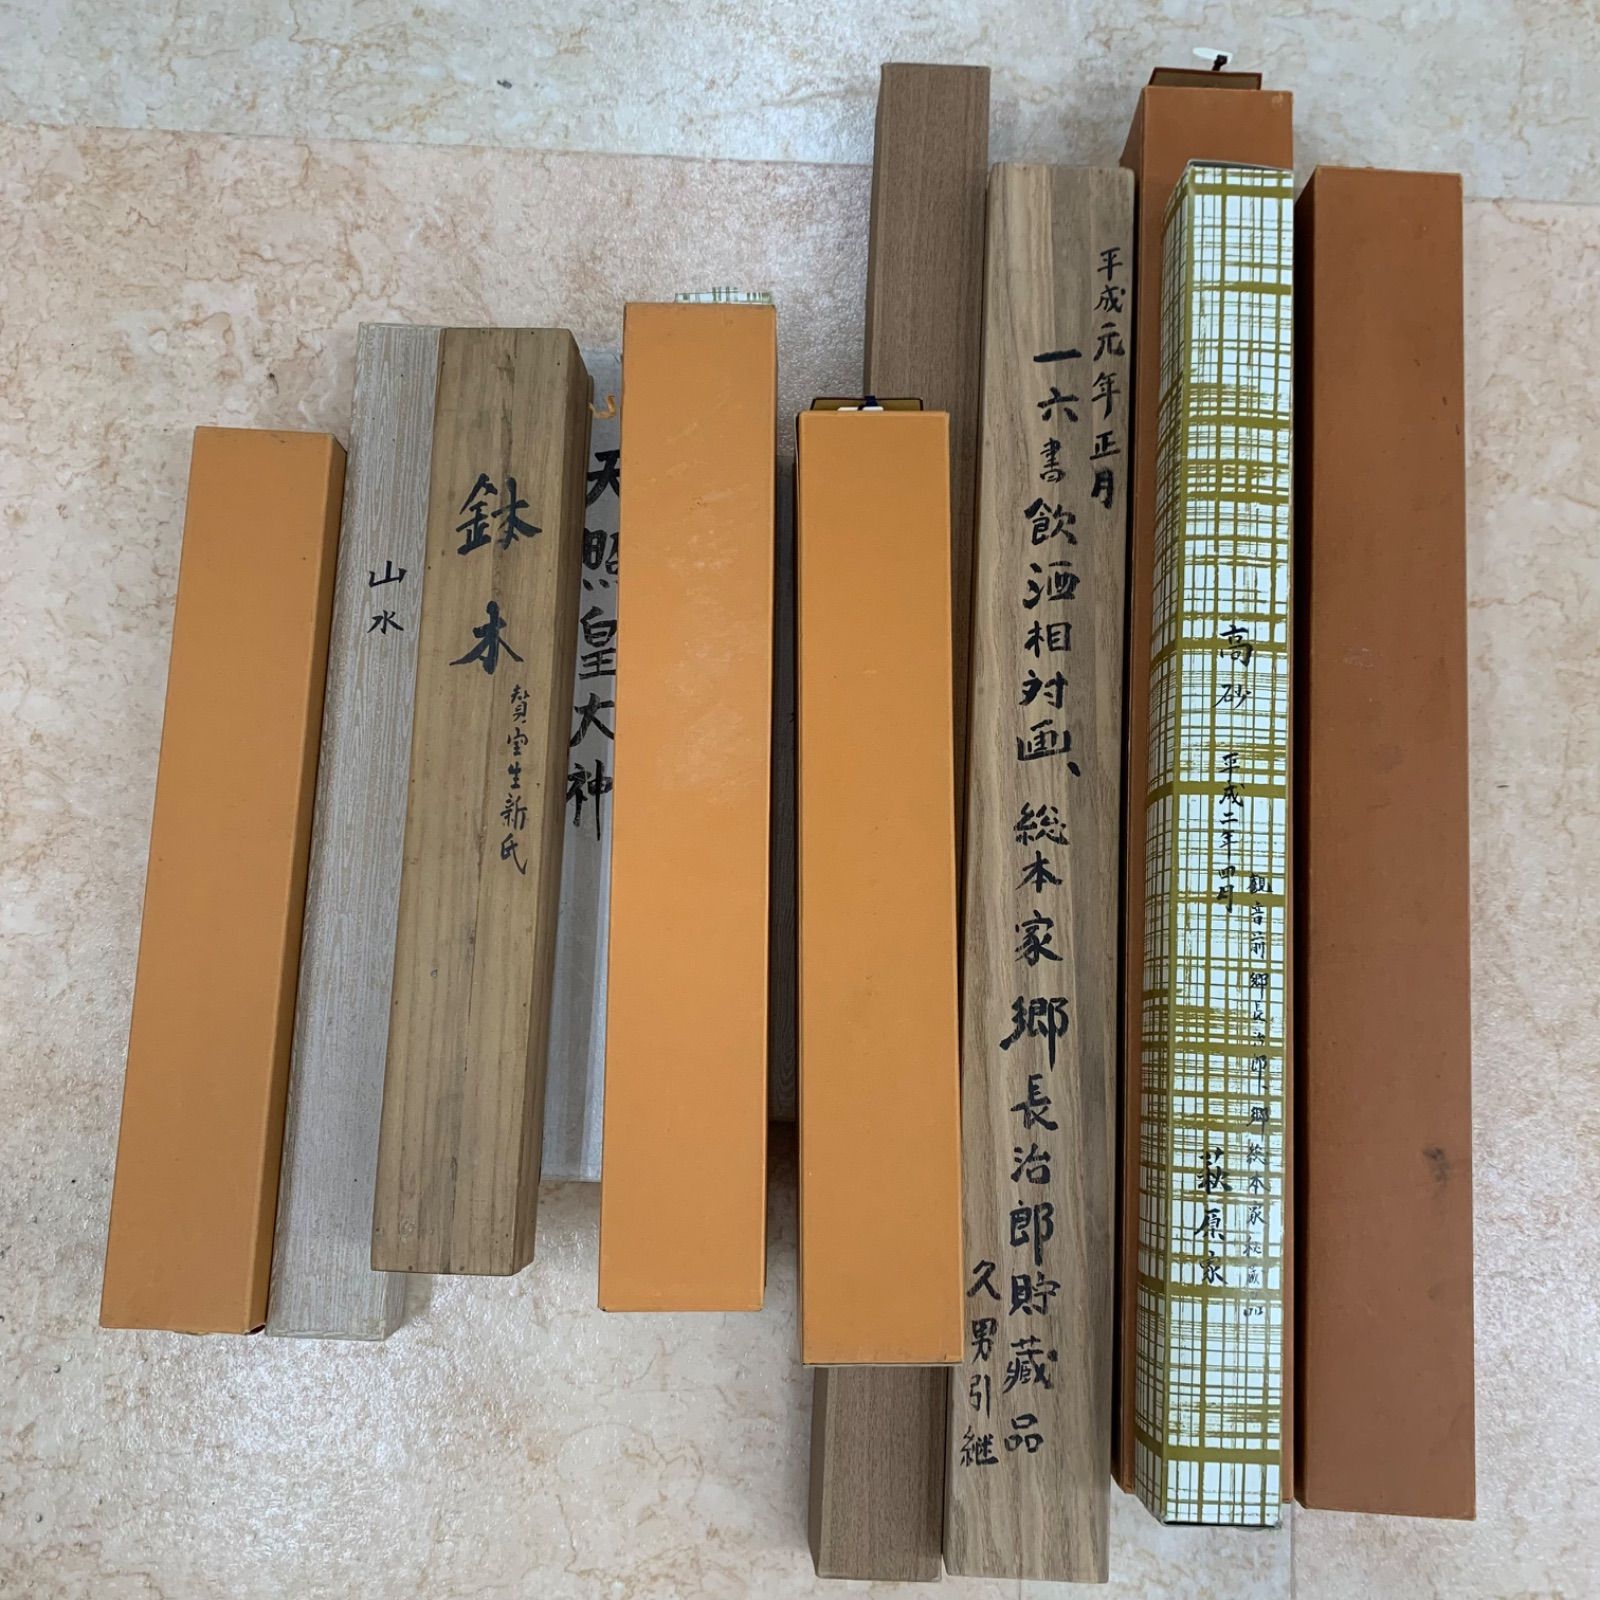 山水
鉢木
賛宝生新氏
天照皇大神
平成元年正月
一六書飲酒相対画、総本家郷長治郎貯蔵品
久男引継
高砂 平成二年四月 萩原家
観音前郷長治郎、郷総本家秘蔵品